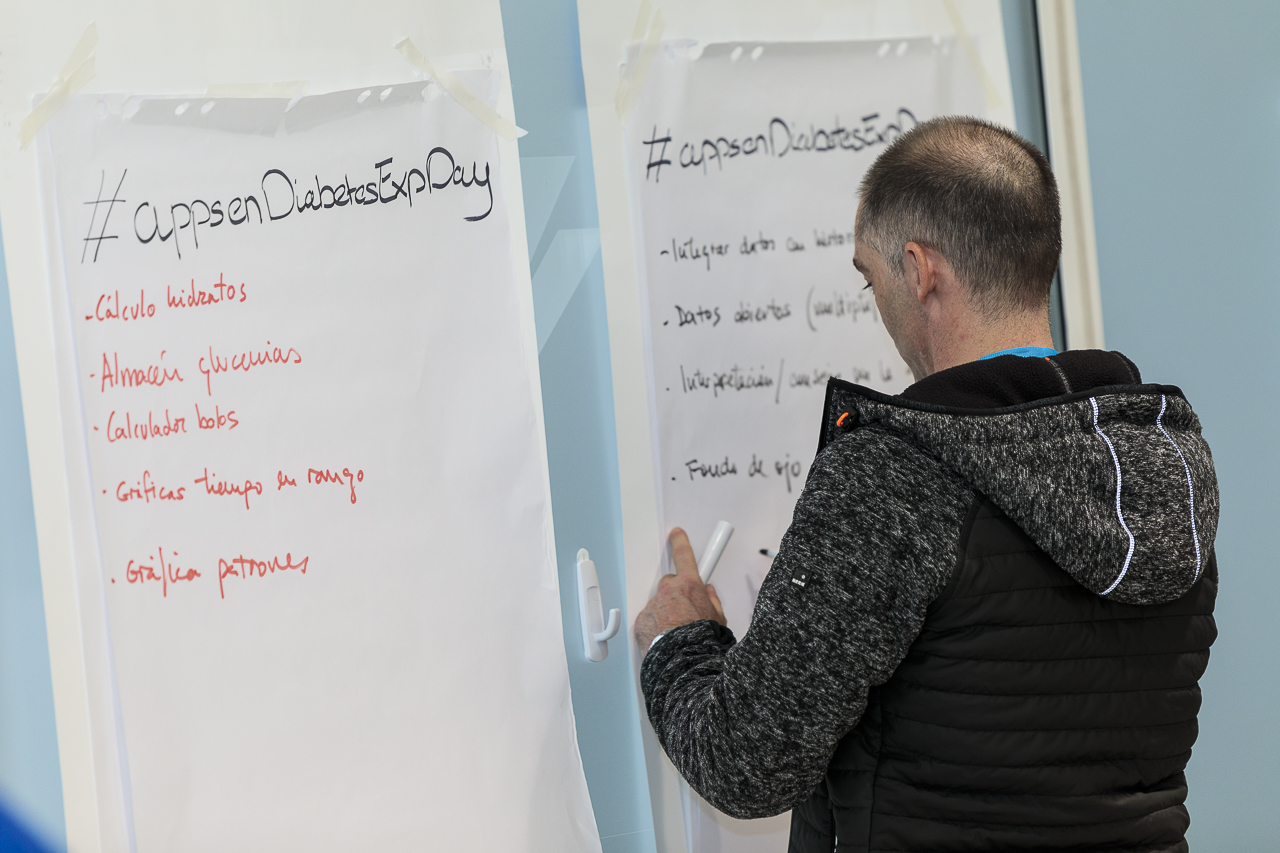 #appsenDiabetesExpDay
-Cálculo hidratos
·Almacén glucemias
·Calculador bolos
·Gráficas tiempo en rango
·Gráfica patrones
#appsenDiabetesExpD
-Integrar datos con histori
·Datos abiertos
·Interpretación/
·Fondo de ojo